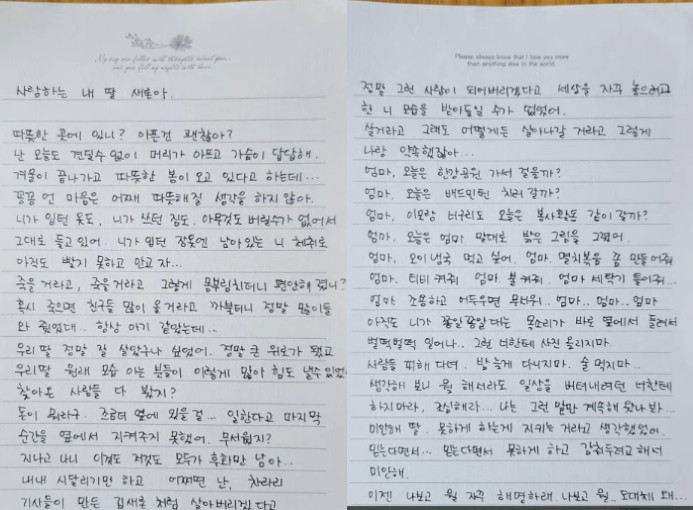 My day are filled with thoughts about you...
and you fill my nights with love.
사랑하는 내 딸 새론아.
따뜻한 곳에 있니? 아픈건 괜찮아?
난 오늘도 견딜수 없이 머리가 아프고 가슴이 답답해.
겨울이 끝나가고 따뜻한 봄이 오고 있다고 하는데...
꽁꽁 언 마음은 어째 따뜻해질 생각을 하지 않아.
니가 입던 옷도, 니가 쓰던 짐도. 아무것도 버릴수가 없어서
그대로 들고 있어. 니가 입던 잠옷엔 남아있는 니 체취로
아직도 빨지 못하고 안고 자...
죽을 거라고, 죽을거라고 그렇게 몸부림치더니 편안해 졌니?
혹시 죽으면 친구들 많이 올 거라고 까불더니 정말 많이들
와 줬었대.. 항상 아기 같았는데..
우리 딸 정말 잘 살았구나 싶었어. 정말 큰 위로가 됐고
우리딸 원래 모습 아는 분들이 이렇게 많아 힘도 낼수 있었어
찾아온 사람들 다 봤지?
돈이 뭐라구. 조금더 옆에 있을 걸... 일한다고 마지막
순간을 옆에서 지켜주지 못했어. 무서웠지?
지나고 나니 이것도 저것도 모두가 후회만 남아..
내내 시달리기만 하고 어쩌면 난, 차라리
기사들이 만든 김새론 처럼 살아버리겠다고
Please always know that I love you more
than anything else in the world.
정말 그런 사람이 되어버리겠다고 세상을 자꾸 놓으려고
한 니 모습을 받아들일 수가 없었어.
살거라고 그래도 어떻게든 살아나갈 거라고 그렇게
나랑 약속했잖아...
엄마, 오늘은 한강공원 가서 걸을까?
엄마. 오늘은 배드민턴 치러 갈까?
엄마, 이모랑 너구리도 오늘은 같이 갈까?
엄마. 오늘은 엄마 말대로 밝은 그림을 그렸어.
엄마, 오이냉국 먹고 싶어. 엄마. 멸치볶음 좀 만들어줘
엄마. 티비 켜줘 엄마 불 켜줘. 엄마 세탁기 돌려줘...
엄마 조용하고 어두우면 무서워.. 엄마.. 엄마.. 엄마
아직도 니가 꽁알꽁알대는 목소리가 바로 옆에서 들려서
벌떡벌떡 일어나.. 그런 너한테 사진 올리지마
사람들 피해 다녀. 밤 늦게 다니지마. 술 먹지마..
생각해 보니 뭘 해서라도 일상을 버텨내려던 너한테
하지마라, 조심해라... 나는 그런 말만 계속해 왔나봐...
미안해 딸. 못하게 하는게 지키는 거라고 생각했었어.
믿는다면서... 믿는다면서 못하게 하고 감춰두려고 해서
미안해.
이젠 나보고 뭘 자꾸 해명하래 나보고 뭘.. 도대체 왜...